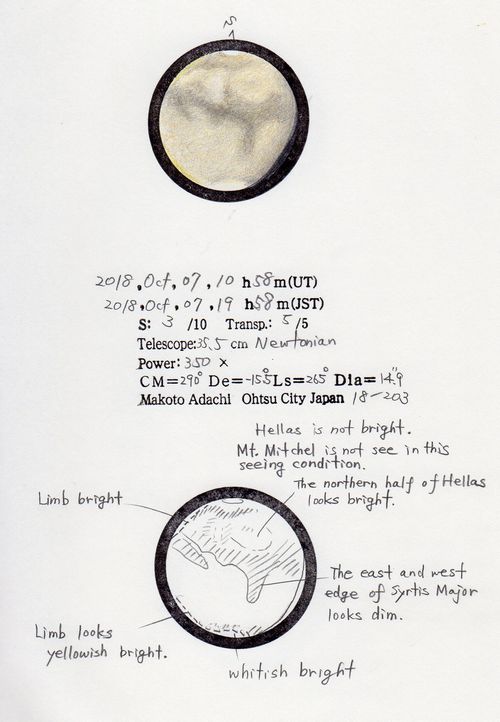 S
2018, Oct, 07, 10 h58m(UT)
2018, Oct, 07, 19 h58m(JST)
S: 3 /10 Transp.: 5/5
Telescope:35.5 cm Newtonian
Power: 350 ×
CM=290° De=-15.5° Ls=265° Dia=14."9
Makoto Adachi Ohtsu City Japan 18-203
Hellas is not bright.
Mt. Mitchel is not see in this
seeing condition.
The northern half of Hellas
looks bright.
Limb bright
The east and west
edge of Syrtis Major
looks dim.
Limb looks
yellowish bright.
whitish bright